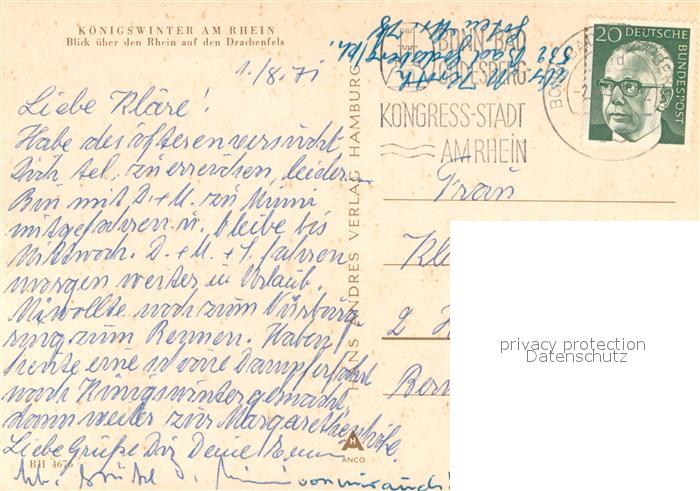 KÖNIGSWINTER AM RHEIN
Blick über den Rhein auf den Drachenfels
1./8.71
Liebe Kläre!
Habe des öfteren versucht
Dich tel. zu erreichen, leider.
Bin mit D.+M. zu Mimi
mitgefahren u. bleibe bis
Mittwoch. D.+M.+ fahren
morgen weiter in Urlaub.
M. wollte noch zum Nürburg
ring zum Rennen. Haben
heute eine schöne Dampferfahrt
nach Königswinter gemacht,
dann weiter zur Margarethenhöhe.
Liebe Grüße Dir Deine
von mir auch!
RH 4676
HANS ANDRES VERLAG HAMBURG
H A
ANCO
532 Bad Godesberg
BONN-BAD
GODESBERG
KONGRESS-STADT
AM RHEIN
BONN
20 DEUTSCHE
BUNDESPOST
Frau
Kl
2 H
privacy protection
Datenschutz